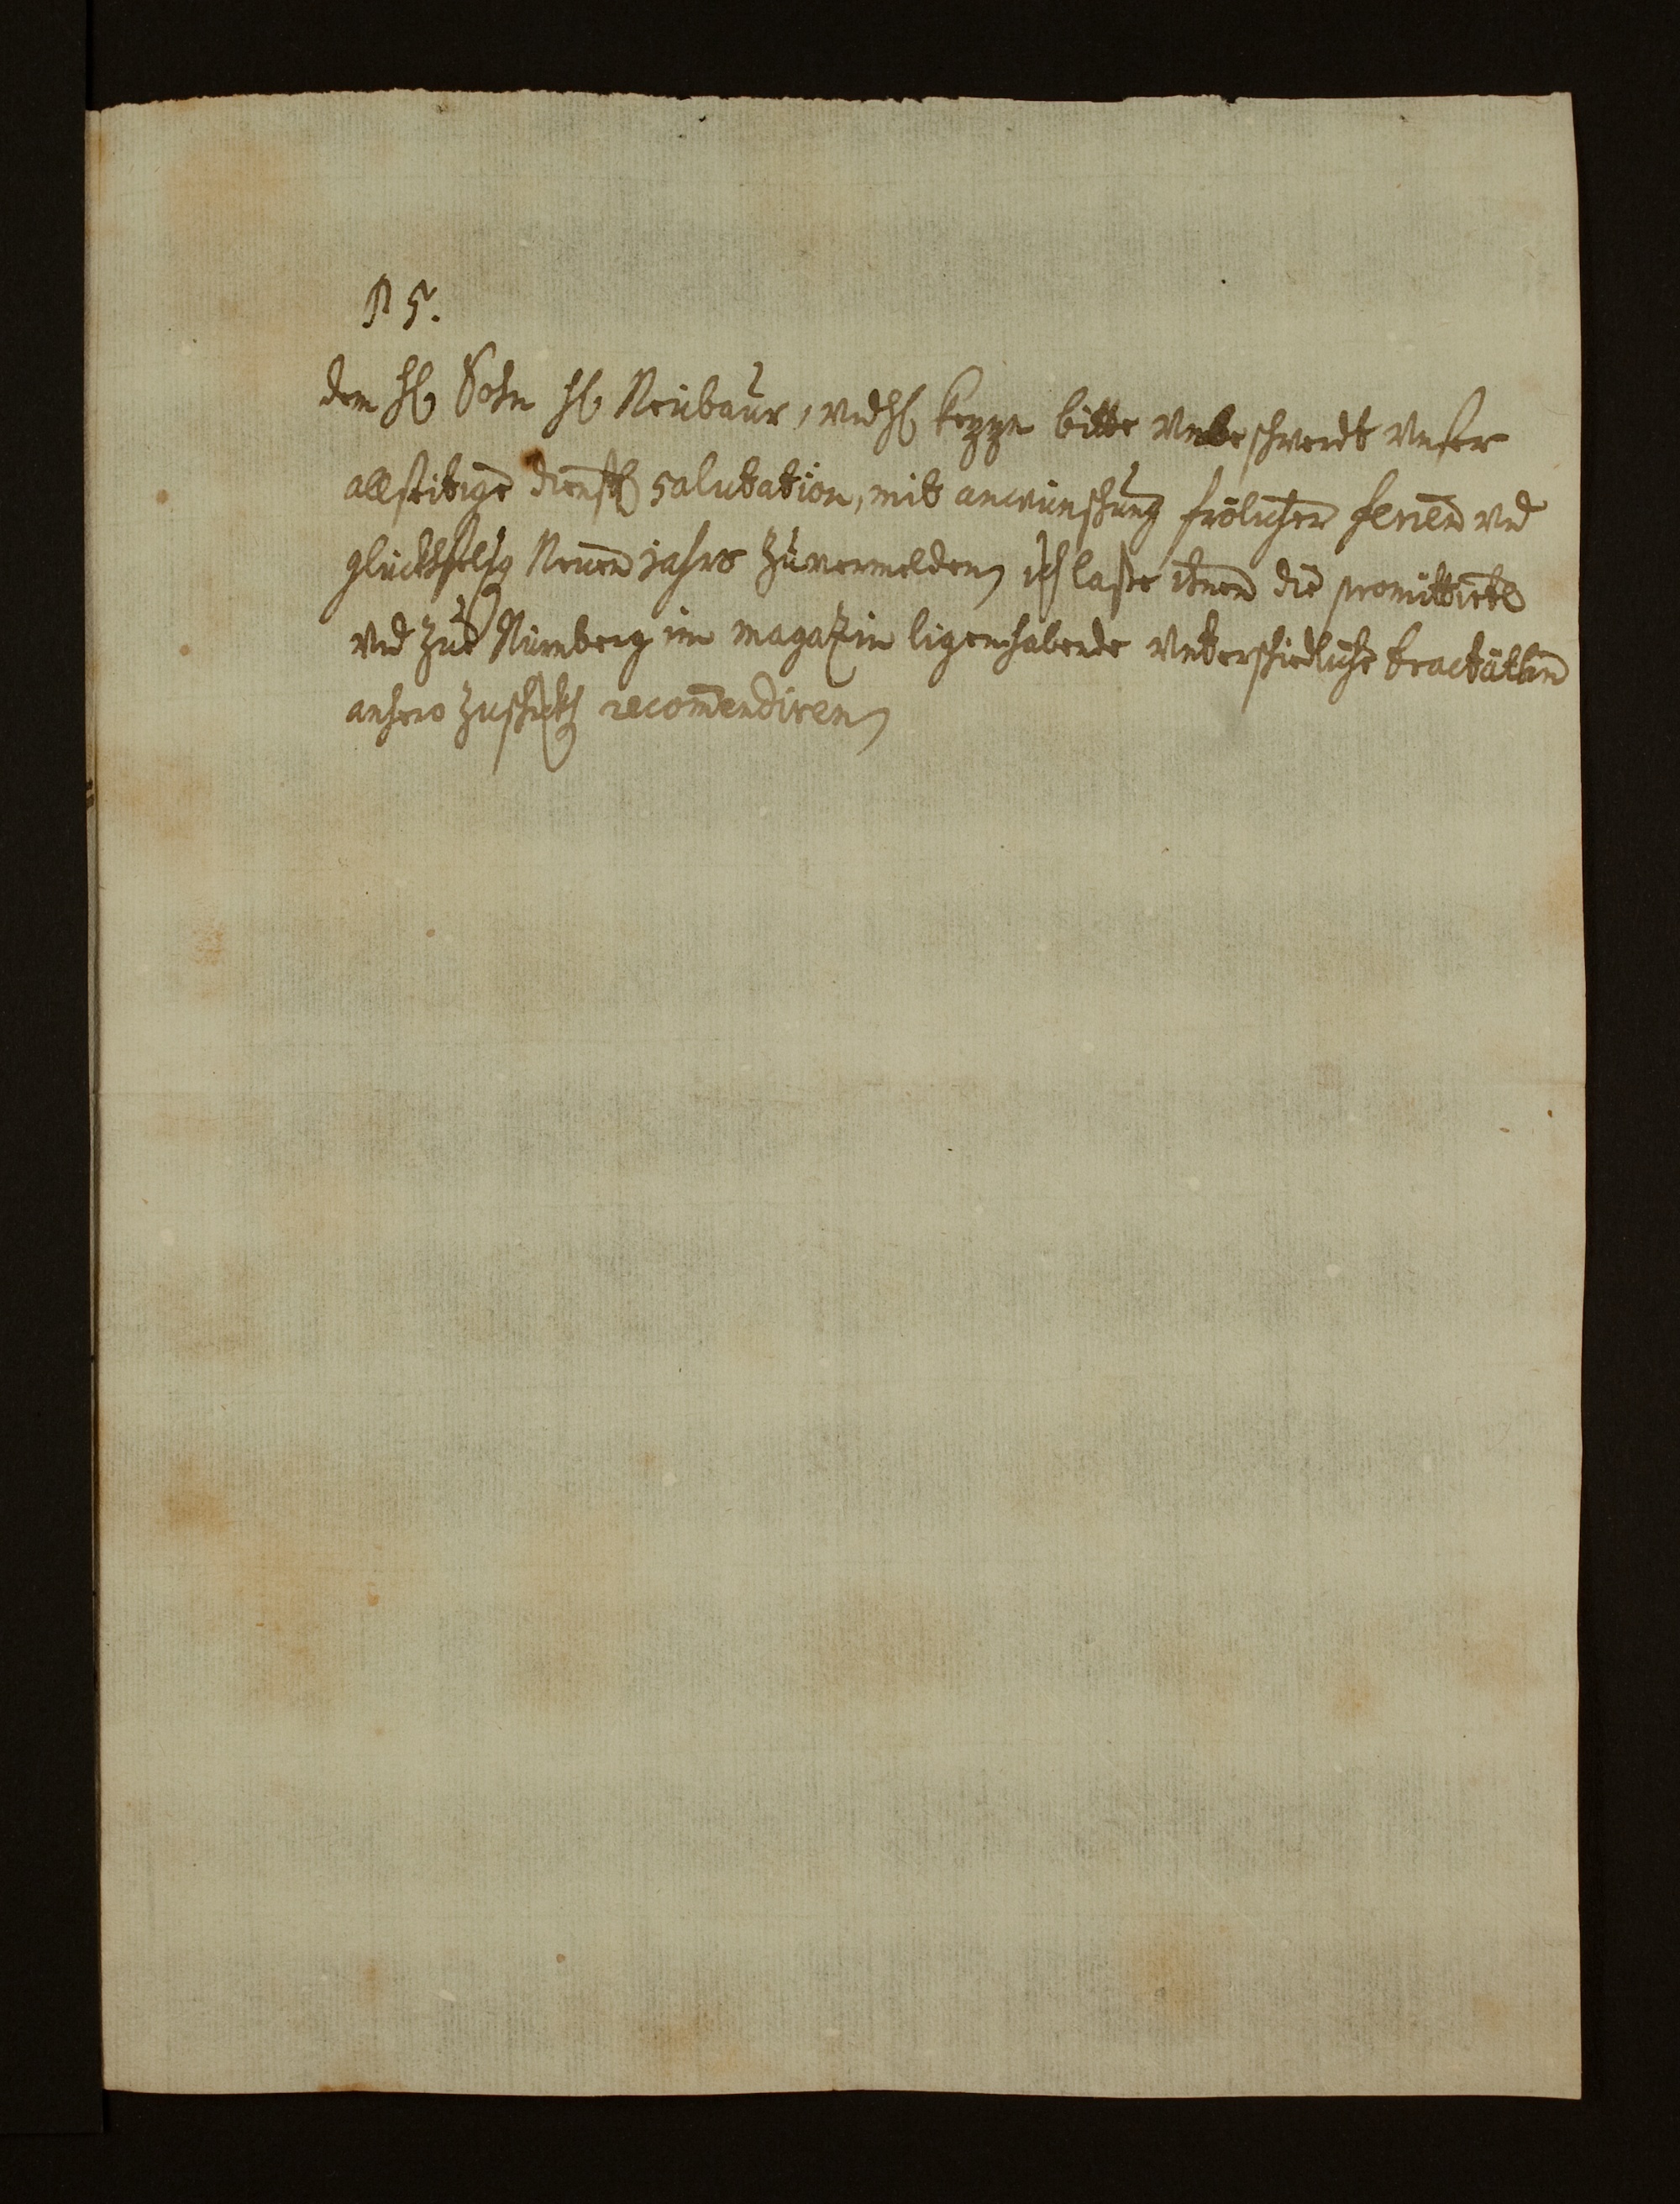 PS.
dem H. Sohn H. Neubaur, vnd H. bitte vnbeschwerdt vnser
allseitige dienstl. salutation, mit anwünschung frölicher ferien vnd
glückhseelig Neuen jahrs zuvermelden, ich lasse ihnen die promittirte
vnd zue Nürnberg im magazin ligen habende vnterschiedliche tractätlein
anhero zuschickh recommendiren